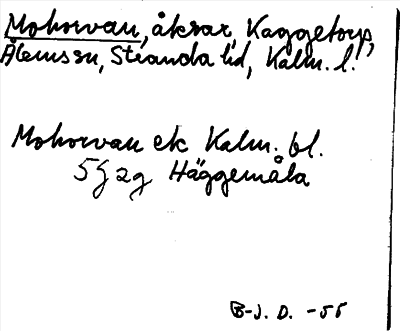 Mohorvan, åkrar, Kaggetorp,
Ålems sn, Stranda hd, Kalm. l.
Mohorvan ek Kalm. bl.
5 j 2 g Häggemåla
B-J. D. -55